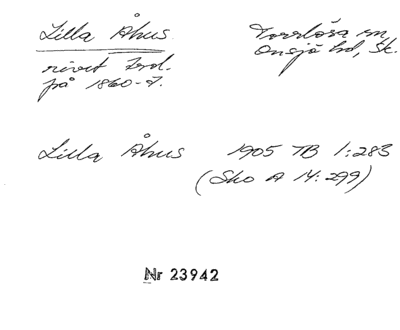 Lilla Åhus
Torrlösa sn
Onsjö hd, Sk.
rivet torp.
på 1860-t.
Lilla Åhus 1905 TB 1:283
(Sko A 14:299)
Nr 23942